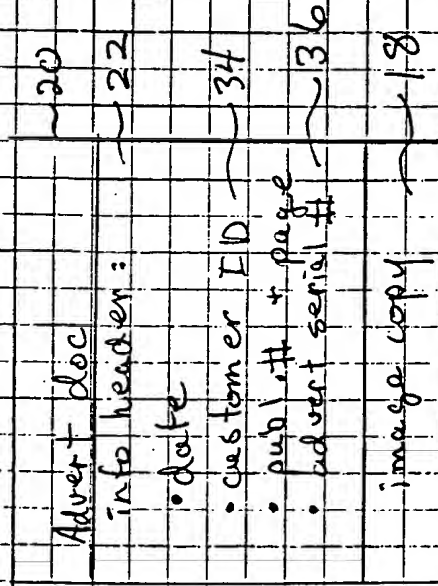 Advert doc 20
info header: 22
• date
• customer ID 34
• publ. # + page
• advert serial # 36
image copy 18